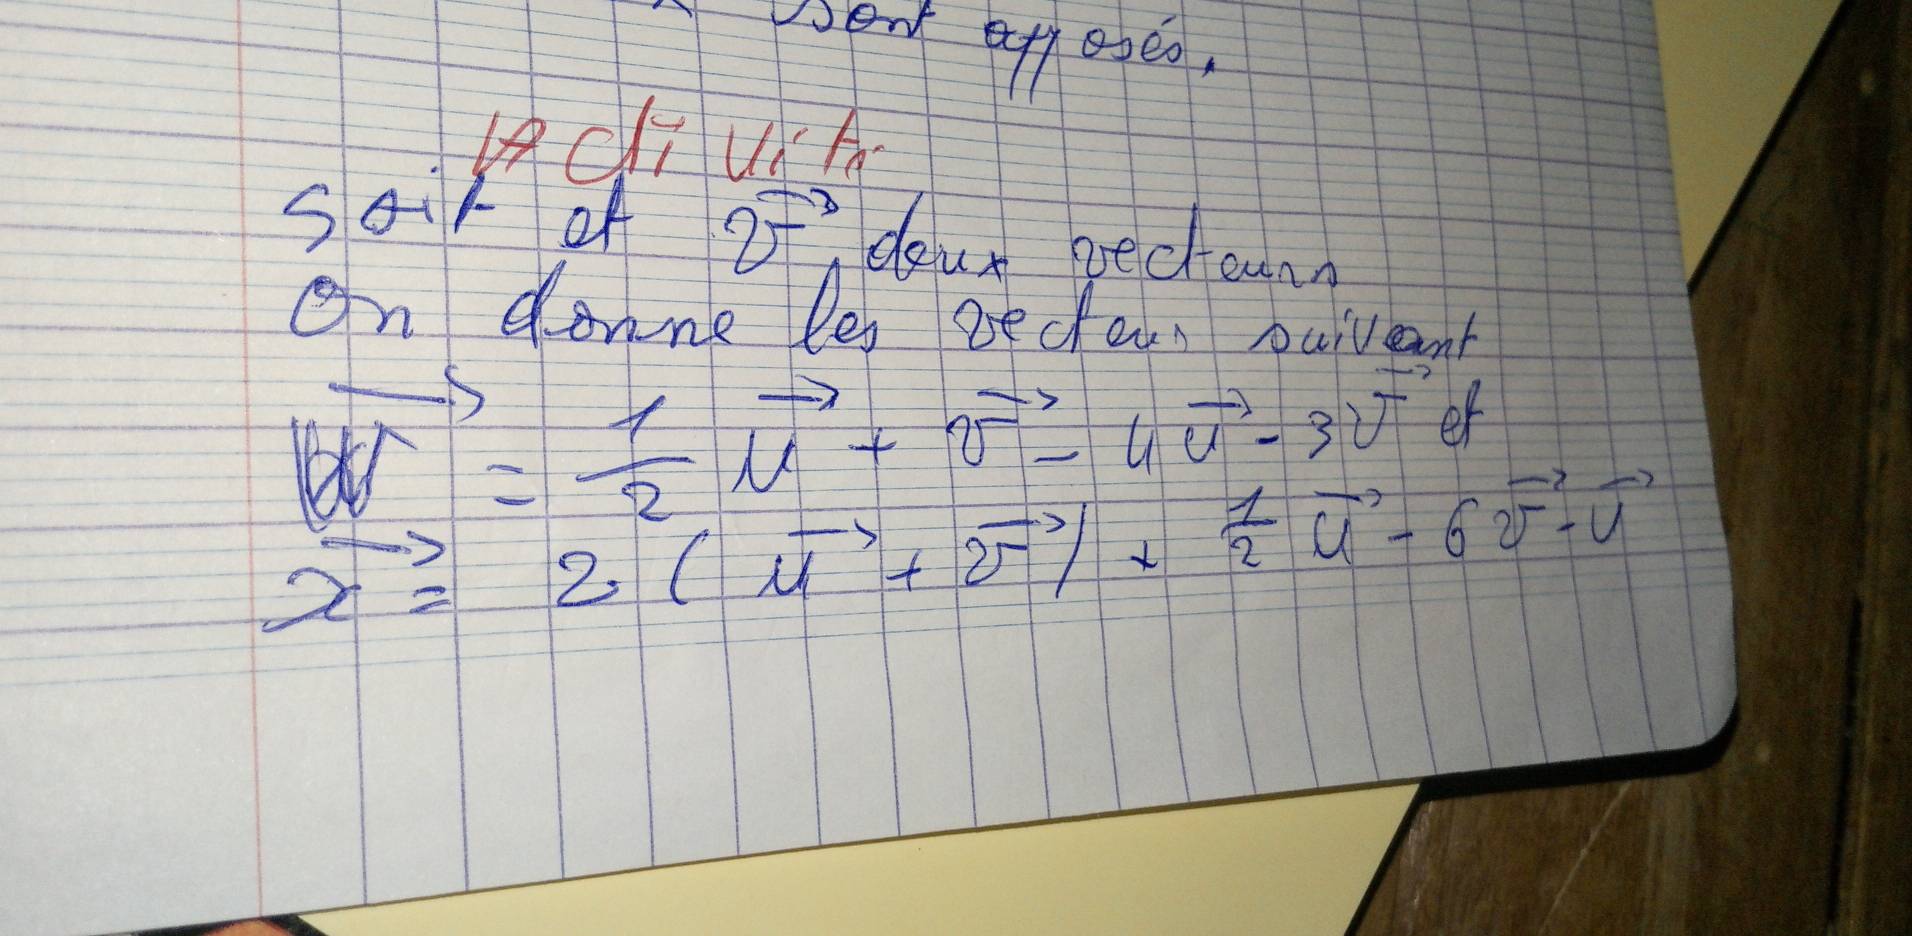 sont opposés.
Activité
Soit et v⃗ deux vecteurs
On donne les vecteurs suivant
w⃗ = 1/2 u⃗ + v⃗ - 4u⃗ - 3v⃗ et
x⃗ = 2(u⃗ + v⃗) + 1/2 u⃗ - 6v⃗ - u⃗